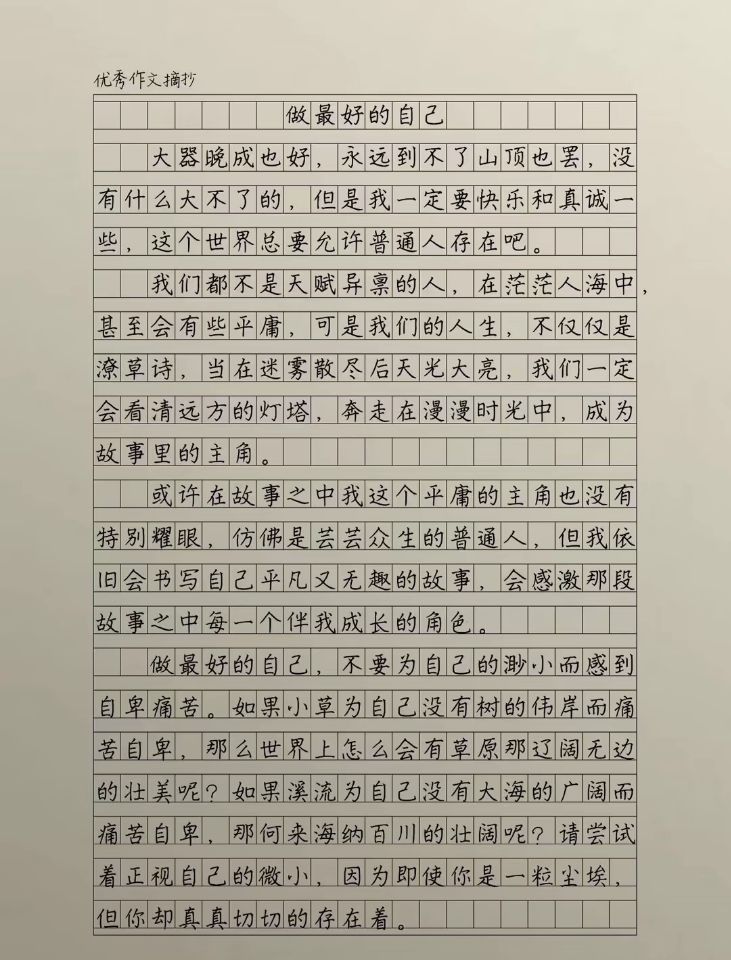 优秀作文摘抄
做最好的自己
大器晚成也好，永远到不了山顶也罢，没
有什么大不了的，但是我一定要快乐和真诚一
些，这个世界总要允许普通人存在吧。
我们都不是天赋异禀的人，在茫茫人海中，
甚至会有些平庸，可是我们的人生，不仅仅是
潦草诗，当在迷雾散尽后天光大亮，我们一定
会看清远方的灯塔，奔走在漫漫时光中，成为
故事里的主角。
或许在故事之中我这个平庸的主角也没有
特别耀眼，仿佛是芸芸众生的普通人，但我依
旧会书写自己平凡又无趣的故事，会感激那段
故事之中每一个伴我成长的角色。
做最好的自己，不要为自己的渺小而感到
自卑痛苦。如果小草为自己没有树的伟岸而痛
苦自卑，那么世界上怎么会有草原那辽阔无边
的壮美呢？如果溪流为自己没有大海的广阔而
痛苦自卑，那何来海纳百川的壮阔呢？请尝试
着正视自己的微小，因为即使你是一粒尘埃，
但你却真真切切的存在着。